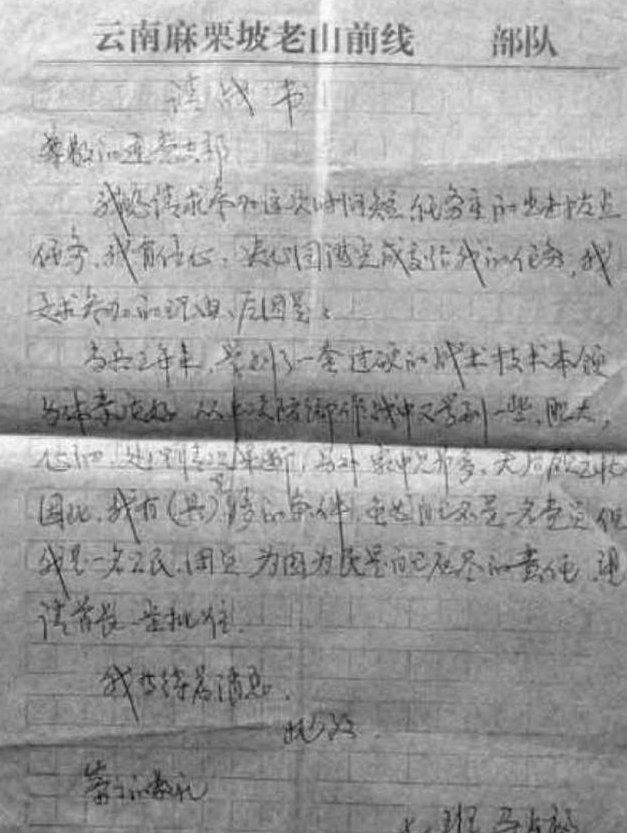 云南麻栗坡老山前线 部队
请战书
尊敬的连党支部
我恳请求参加这次时间短,任务重的出击拔点
任务,我有信心,决心圆满完成交给我的任务,我
要求参加的理由、原因是:
当兵三年来,学到了一套过硬的战术技术本领
身体素质好,从上次防御作战中又学到一些,胆大,
心细,处理情况果断,另外家中兄弟多,无后顾之忧
因此,我有(具)备的条件,虽然自己不是一名党员但
我是一名公民,因此为国为民是自己应尽的责任,望
请首长一定批准.
我等待着消息.
此致
崇高的敬礼
班 马占